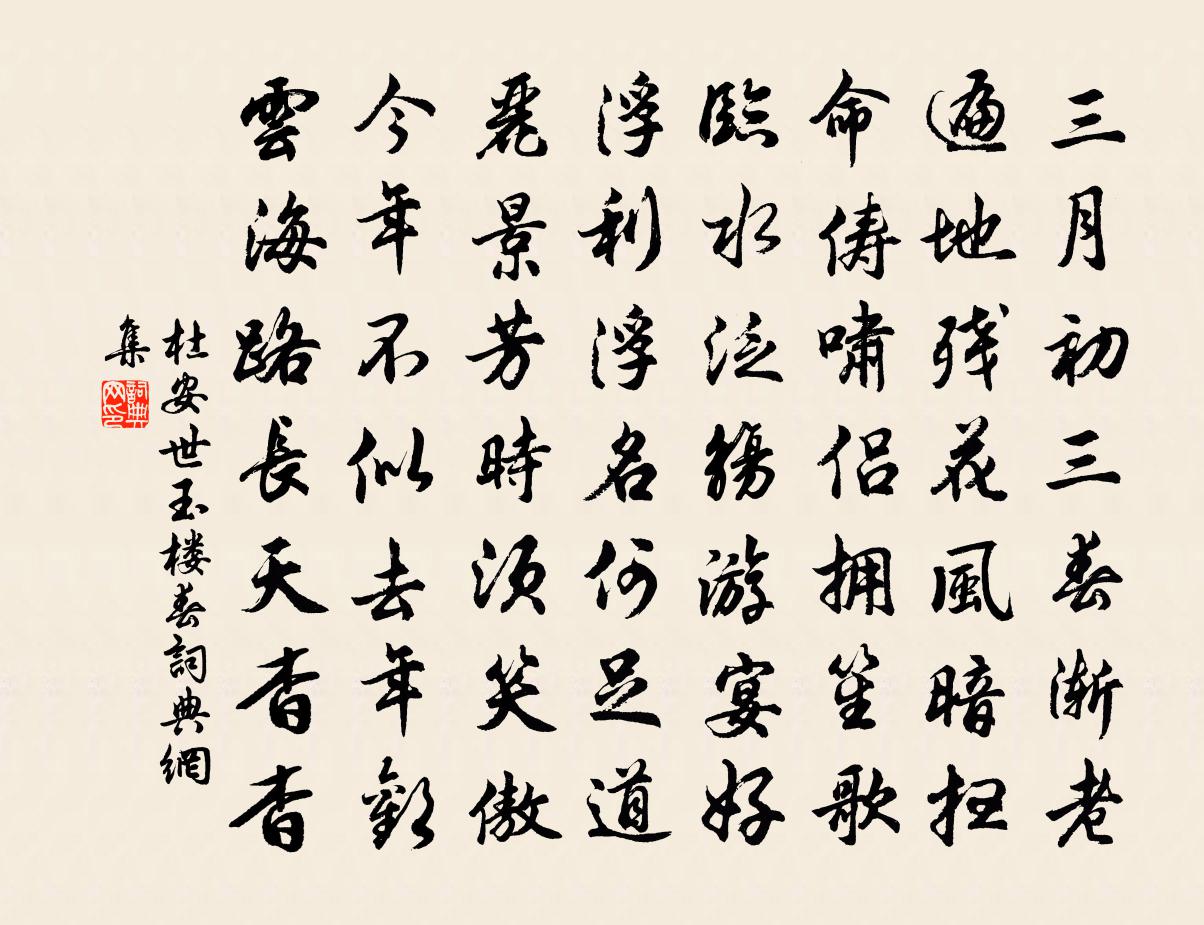 三月初三春渐老
遍地残花風暗扫
命俦嘯侣拥笙歌
臨水泛觴游宴好
浮利浮名何足道
麗景芳時須笑傲
今年不似去年歡
雲海路長天杳杳
杜安世玉楼春詞典網
集
詞典网印